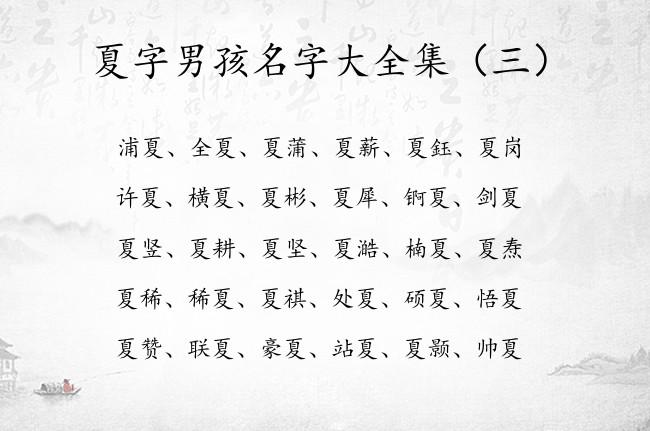 夏字男孩名字大全集（三）
浦夏、全夏、夏蒲、夏薪、夏鈺、夏岗
许夏、横夏、夏彬、夏犀、锕夏、剑夏
夏竖、夏耕、夏坚、夏澔、楠夏、夏焘
夏稀、稀夏、夏祺、处夏、硕夏、悟夏
夏赞、联夏、豪夏、站夏、夏颢、帅夏